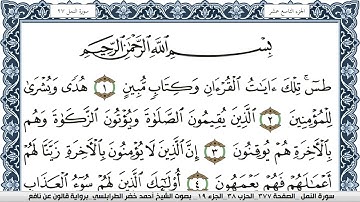 الجزء التاسع عشر
سورة النمل ٢٧
بِسْمِ اللَّهِ الرَّحْمَٰنِ الرَّحِيمِ
طسٓ ۚ تِلْكَ ءَايَٰتُ الْقُرْءَانِ وَكِتَابٍ مُّبِينٍ ١ هُدًى وَبُشْرَىٰ
لِلْمُؤْمِنِينَ ٢ الَّذِينَ يُقِيمُونَ الصَّلَوٰةَ وَيُؤْتُونَ الزَّكَوٰةَ وَهُم
بِالْآخِرَةِ هُمْ يُوقِنُونَ ٣ إِنَّ الَّذِينَ لَا يُؤْمِنُونَ بِالْآخِرَةِ زَيَّنَّا لَهُمْ
أَعْمَٰلَهُمْ فَهُمْ يَعْمَهُونَ ٤ أُوْلَٰٓئِكَ الَّذِينَ لَهُمْ سُوٓءُ الْعَذَابِ
سورة النمل الصفحة ٣٧٧ الحزب ٣٨ الجزء ١٩ بصوت الشيخ أحمد خضر الطرابلسي برواية قالون عن نافع